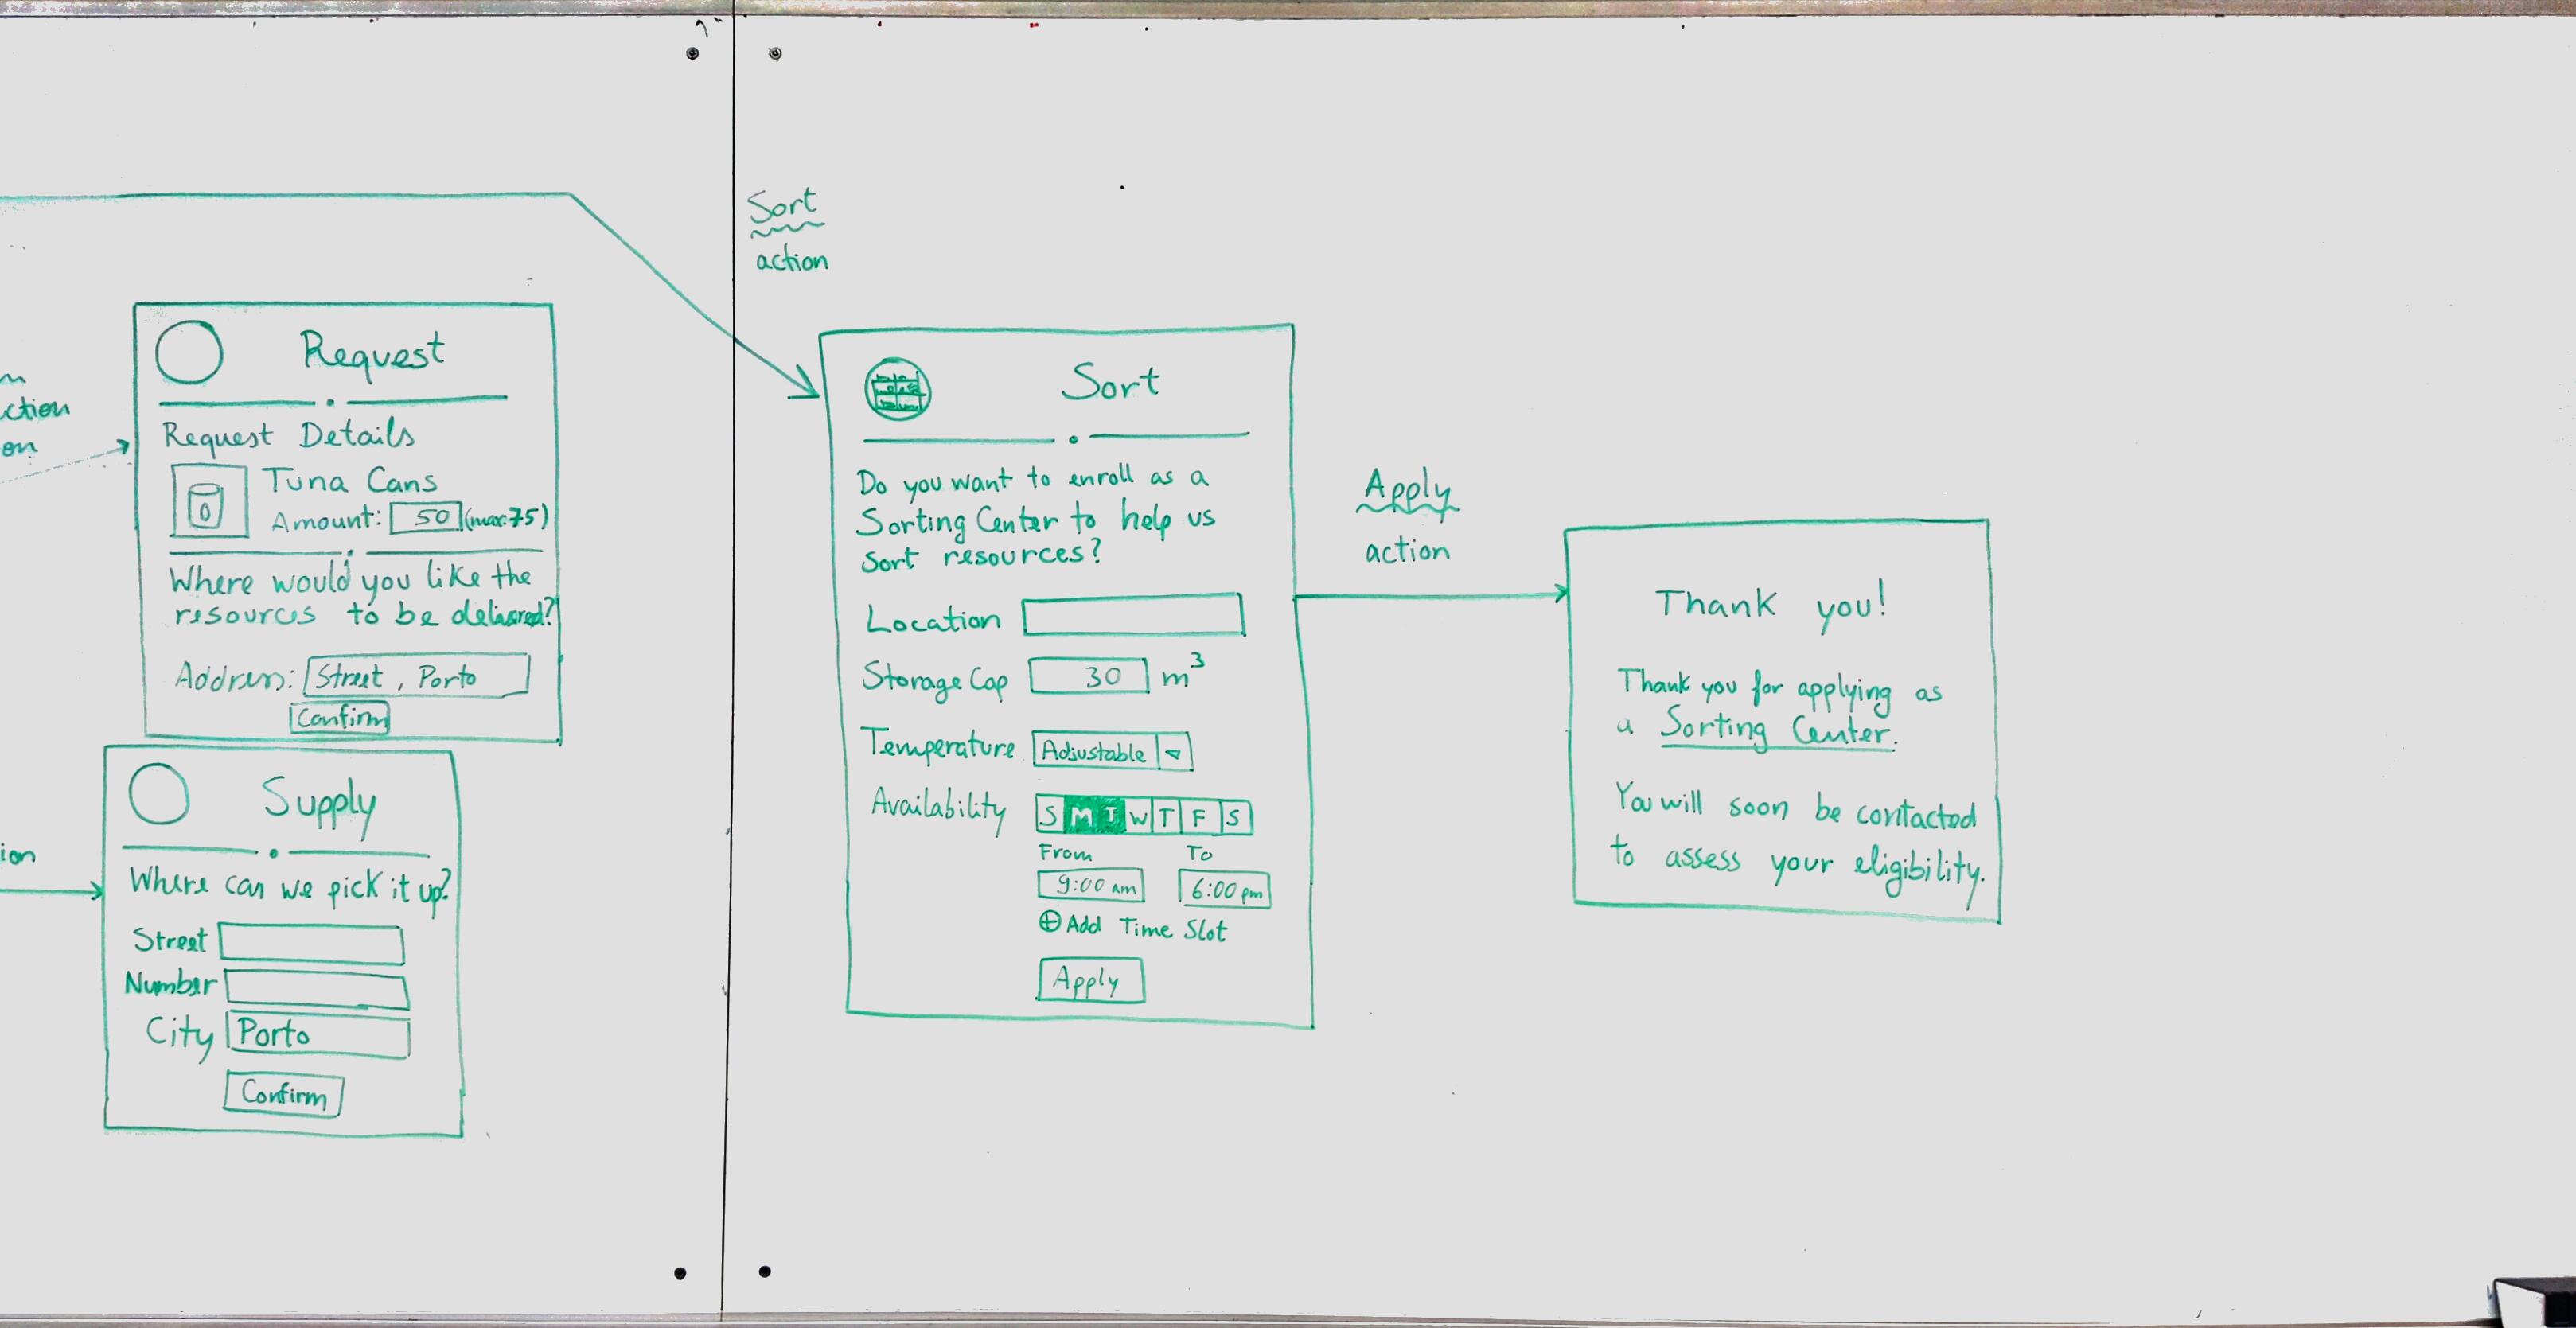 Sort
action
Request
Request Details
Tuna Cans
Amount: 50 (max:75)
Where would you like the
resources to be delivered?
Address: Street, Porto
Confirm
ction
on
Supply
Where can we pick it up?
Street
Number
City Porto
Confirm
ion
Sort
Do you want to enroll as a
Sorting Center to help us
sort resources?
Location
Storage Cap 30 m³
Temperature Adjustable
Availability S M T W T F S
From To
9:00 am 6:00 pm
⊕ Add Time Slot
Apply
Apply
action
Thank you!
Thank you for applying as
a Sorting Center.
You will soon be contacted
to assess your eligibility.